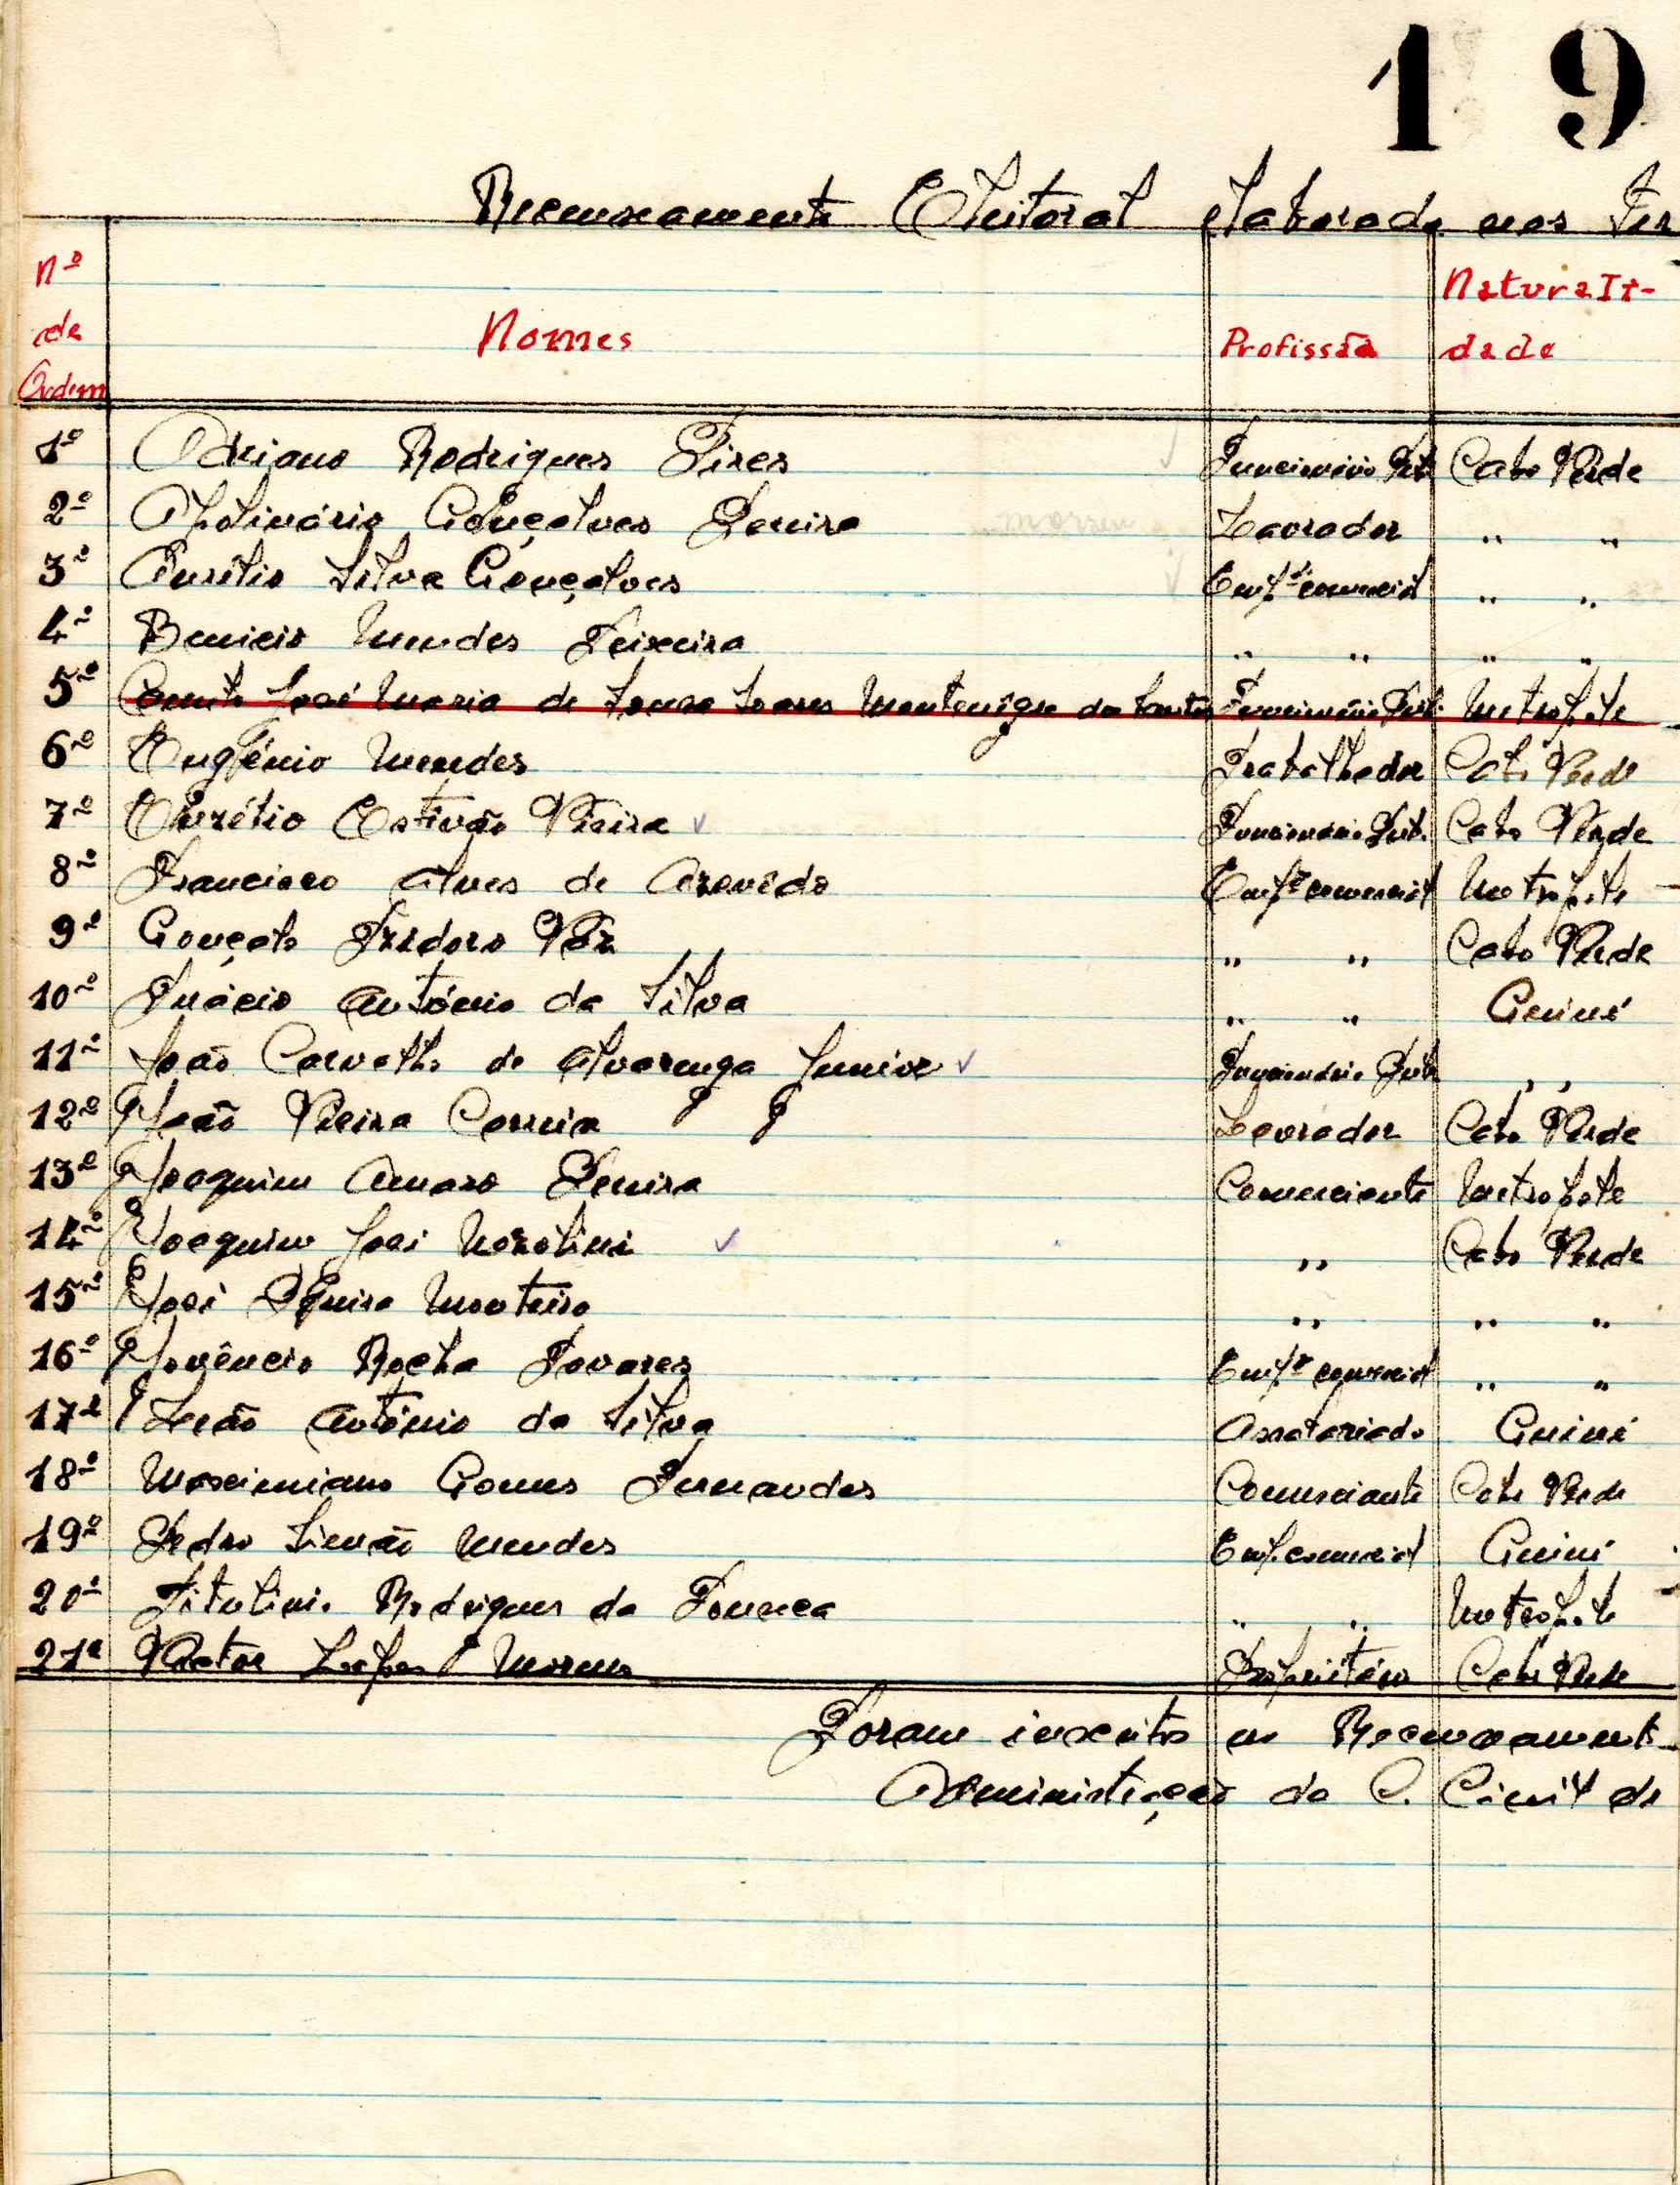 19
Recenseamento Eleitoral elaborado nos Ter
Nº de Ordem Nomes Profissão Naturali-dade
1º Adriano Rodrigues Pires Funcionário Púb. Cabo Verde
2º Apolinário Gonçalves Pereira morreu Lavrador " "
3º Aurélio Silva Gonçalves Empº comercial " "
4º Benicio Mendes Teixeira " " " "
5º José Maria de Sousa Soares Montenegro dos Santos Funcionário Púb. Metropole
6º Eugénio Mendes Trabalhador Cabo Verde
7º Eurélio Estêvão Vieira Funcionário Púb. Cabo Verde
8º Francisco Alves de Azevêdo Empº comercial Metropole
9º Gonçalo Izidoro Vaz " " Cabo Verde
10º Inácio António da Silva " " Guiné
11º João Carvalho de Alvarenga Junior Funcionário Púb. " "
12º João Vieira Correia Lavrador Cabo Verde
13º Joaquim Amaro Pereira Comerciante Metropole
14º Joaquim José Nozolini " Cabo Verde
15º José Pereira Monteiro " " "
16º Jovêncio Rocha Tavares Empº comercial " "
17º Leão António da Silva Assalariado Guiné
18º Maximiano Gomes Fernandes Comerciante Cabo Verde
19º Pedro Simão Mendes Emp. comercial Guiné
20º Titolino Rodrigues da Fonseca " " Metropole
21º Victor Lopes Moreno Proprietário Cabo Verde
Foram inscritos no Recenseamento
Administração do C. Civil de